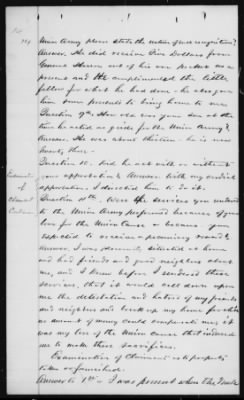 Union Army please state the nature of such recognition?
Answer. He did receive Five Dollars from
General Herron out of his own pocket as a
present and he complimented the little
fellow for what he had done - he also gave
him some presents to bring home to me
Question 9th. How old was your son at the
time he acted as guide for the Union Army?
Answer. He was about thirteen - he is now
twenty three -
Question 10. Did he act with or without
your approbation? Answer. With my cordial
approbation. I directed him to do it.
Question 11th. Were the services you rendered
to the Union Army performed because of your
love for the Union Cause or because you
expected to receive a pecuniary reward?
Answer. I was pleasantly situated in a home
and had friends and good neighbors about
me, and I knew before I rendered these
services, that it would call down upon
me the detestation and hatred of my friends
and neighbors and break up my home for which
no amount of money could compensate me; it
was my love of the Union cause that induced
me to make these sacrifices.
Examination of Claimant as to property
taken or furnished.
Answer to 1st - I was present when the
of
Claimant